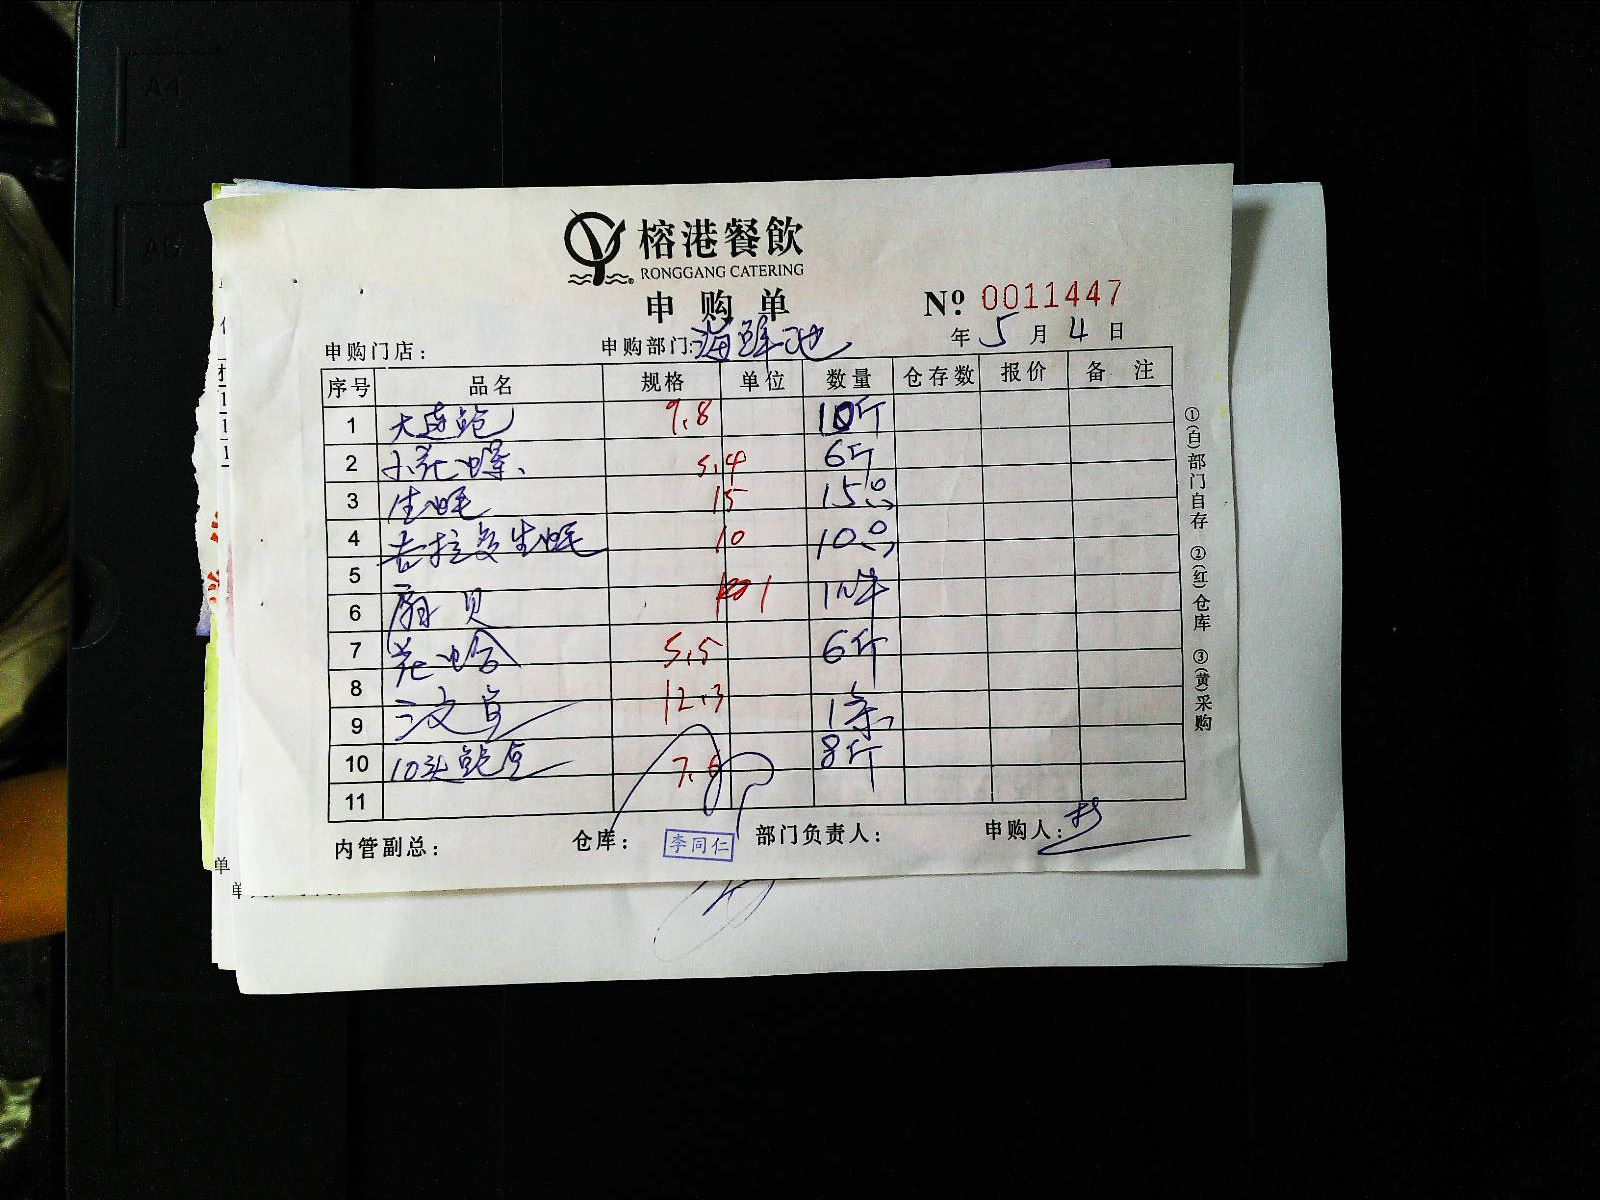 A4
A5
榕港餐飲
RONGGANG CATERING
申购单
Nº 0011447
申购门店： 申购部门：海鲜池 年 5 月 4 日
序号 品名 规格 单位 数量 仓存数 报价 备注
1 大连鲍 9.8 10斤
2 小花螺 5.4 6斤
3 生蚝 15 15只
4 吉拉多生蚝 10 10只
5
6 扇贝 1 1件
7 花蛤 5.5 6斤
8 12.3
9 三文鱼 1条
10 10头鲍鱼 7.6 8斤
11
内管副总： 仓库： 李同仁 部门负责人： 申购人：
①(白)部门自存 ②(红)仓库 ③(黄)采购
单
单